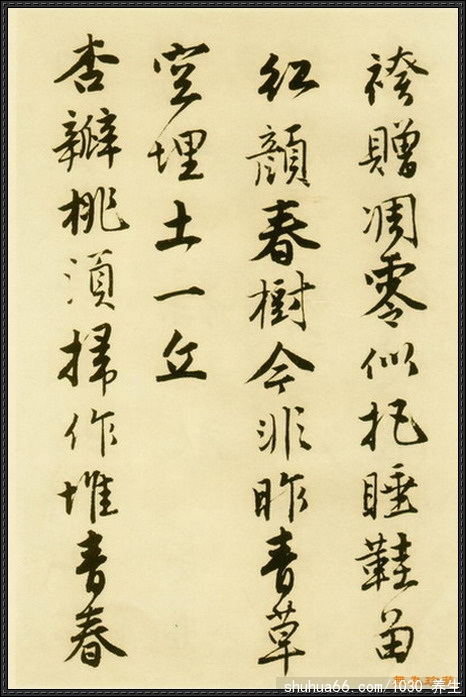 袴贈凋零似把睡鞋留
紅顏春樹今非昨青草
空埋土一丘
杏瓣桃須掃作堆青春
shuhua66.com/1030 养生